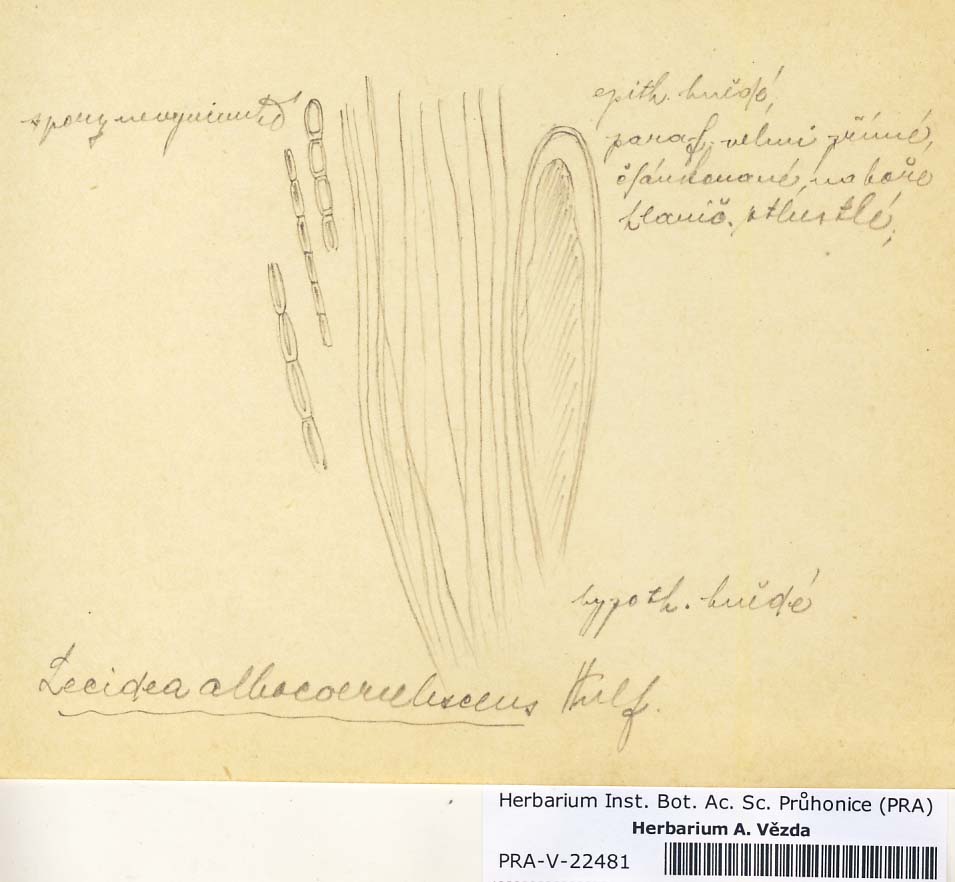 spory nevyvinuté
epith. hnědé,
paraf. velmi přímé,
článkované, na hoře
ztlustlé,
hypoth. hnědé
Lecidea albocoerulescens Wulf.
Herbarium Inst. Bot. Ac. Sc. Průhonice (PRA)
Herbarium A. Vězda
PRA-V-22481